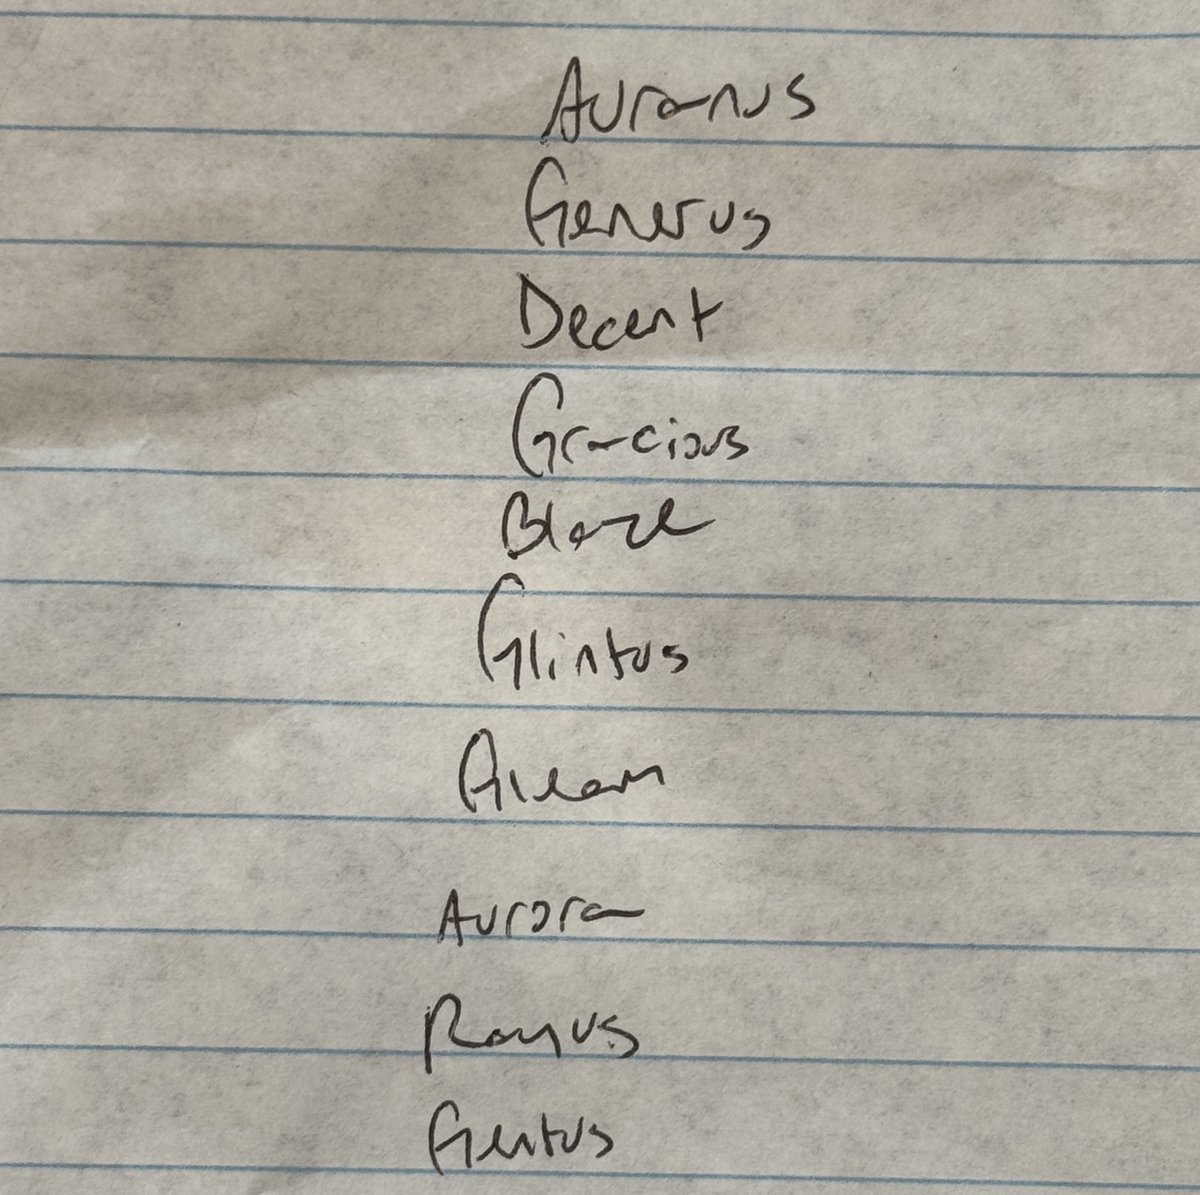 Auranus
Generus
Decent
Gracious
Blaze
Glintus
Gleam
Aurora
Rayus
Gentus